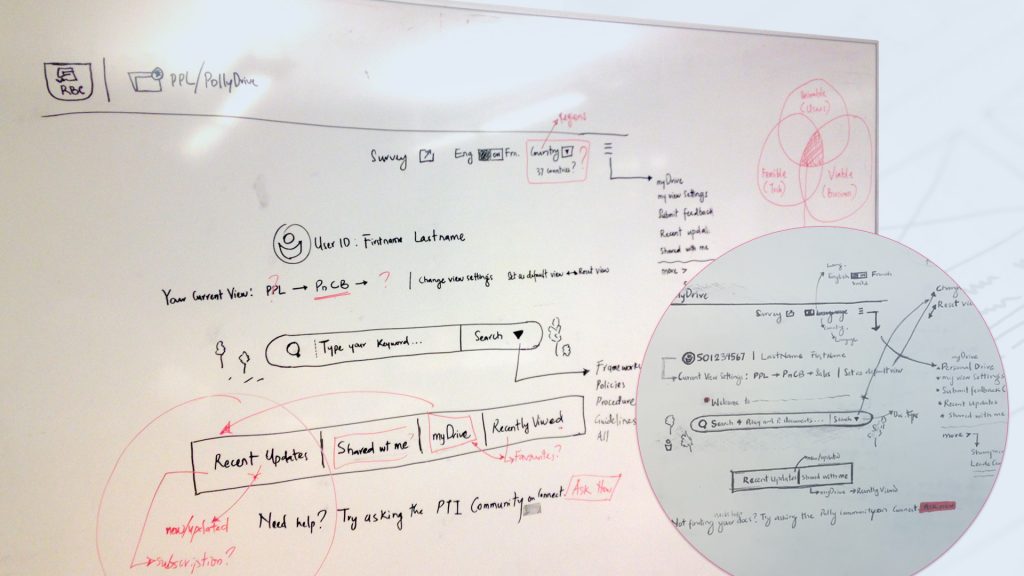 RBC
PPL/PollyDrive
Regions
Survey
Eng on Frn.
Country
37 countries? ?
myDrive
my view settings
Submit feedback
Recent updat
Shared with me
more >
Desirable (Users)
Feasible (Tech)
Viable (Business)
User ID: Firstname Lastname
Your Current View: PPL ? → PnCB → ? | Change view settings Set as default view ↔ Reset view
Type your Keyword... Search
Frameworks
Policies
Procedure
Guidelines
All
Recent Updates
Shared wt me ?
myDrive
Recently Viwed
Favourites?
new/updated
subscription?
Need help? Try asking the PTI Community on Connect. Ask Now
yDrive
English on French
Survey
Language
Chang
Reset vie
501234567 | LastName Firstname
Current View Settings: PPL → PnCB → Subs | Set as default view
Welcome to
Search Policy and documents... Search
myDrive
Personal Drive
my view settings
Submit feedback
Recent updates
Shared with me
more >
new/updated
Recent Updates
Shared with me
myDrive → Recently Viwed
need help
Not finding your docs? Try asking the Polly Community on Connect. Ask now